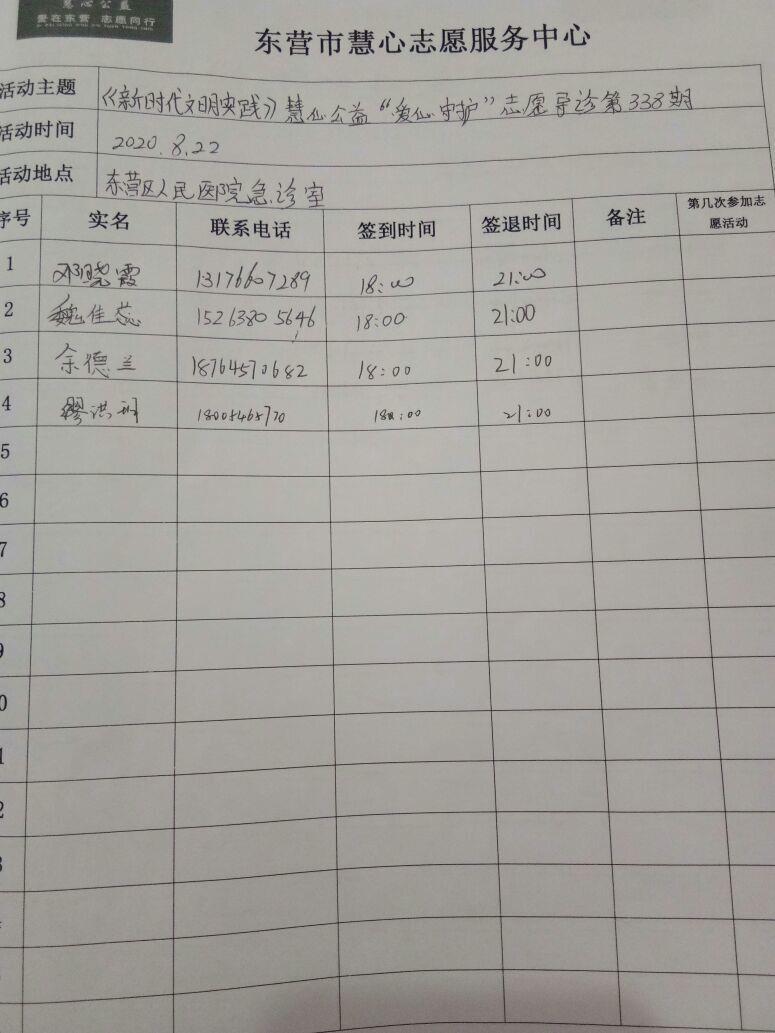 慧心公益
爱在东营 志愿同行
东营市慧心志愿服务中心
活动主题 《新时代文明实践》慧心公益“爱心守护”志愿导诊第338期
活动时间 2020.8.22
活动地点 东营区人民医院急诊室
序号 实名 联系电话 签到时间 签退时间 备注 第几次参加志
愿活动
1 邓晓霞 13176607289 18:00 21:00
2 魏佳蕊 15263805646 18:00 21:00
3 余德兰 18764570682 18:00 21:00
4 缪洪 18:00 21:00
5
6
7
8
9
0
1
2
3